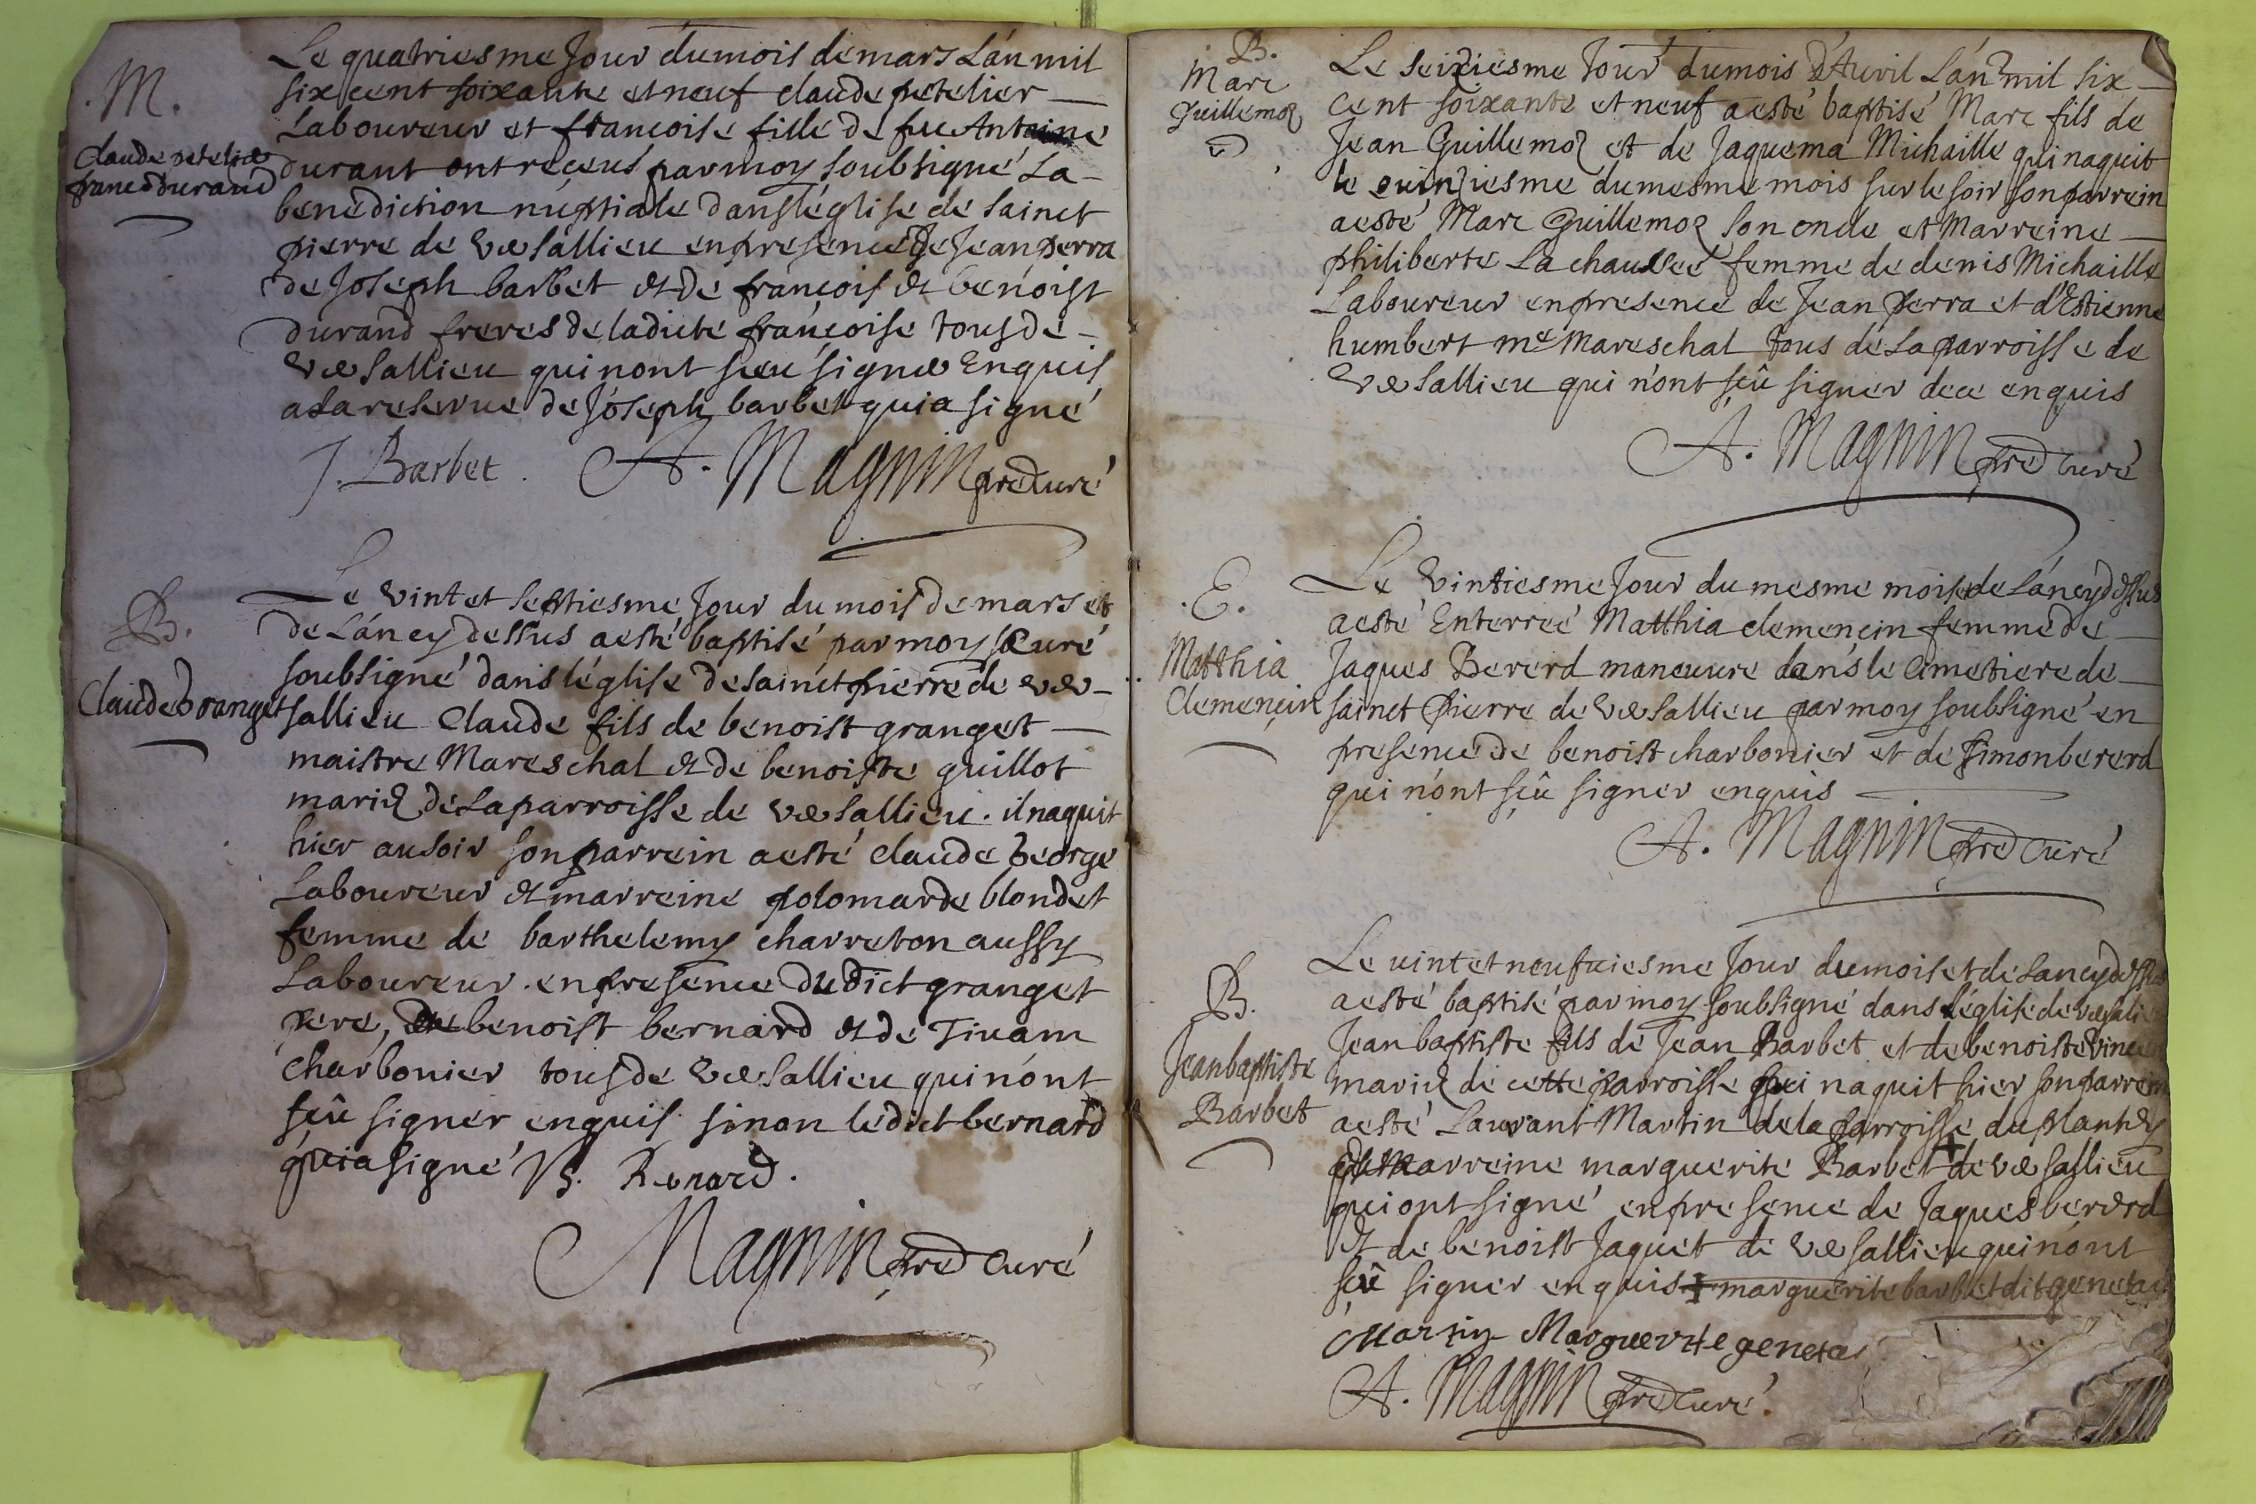 .M.
Claude petelier
franc durand
Le quatriesme Jour dumois demars Lán mil
six cent soixante et neuf claude petelier
Laboureur et francoise fille de feu Antoine
durant ont reçeus par moy soubsigné La
benediction nuptiale dans léglise de sainct
pierre de veSallieu enpresence de Jean perra
de Joseph barbet et de françois et benoist
durand freres de ladicte françoise tous de
veSallieu qui nont sceu signer Enquis
alareserve de Joseph barbet qui a signé
J. Barbet. A. Magnin pre Curé
B.
Claude Granget
Le vint et septiesme Jour du mois de mars et
de Láncy dessus aesté baptisé par moy curé
soubsigné dans léglise de sainct pierre de ve
sallieu Claude fils de benoist granget
maistre Mareschal et de benoiste guillot
mariez de Laparroisse de veSallieu. il naquit
hier au soir son parrein aesté claude George
Laboureur et marreine polomarde blondet
femme de barthelemy charreton aussy
Laboureur. enpresence dudict granget
pere, de benoist bernard et de
charbonier tous de veSallieu qui nónt
sçû signer enquis sinon ledict bernard
qui a signé B. Benard.
Magnin pre Curé
B.
Marc
Guillemoz
Le seiziesme Jour dumois d'Auvril Lán mil six
cent soixante et neuf aesté baptisé Marc fils de
Jean Guillemoz et de Jaquema Michaille qui naquit
le quinziesme dumesme mois sur le soir son parrein
aesté Marc Guillemoz son oncle et Marreine
philiberte La chausseé femme de denis Michaille
Laboureur enpresence de Jean Perra et d'Estienne
humbert me Mareschal tous de Laparroisse de
veSallieu qui n'ont sçû signer de ce enquis
A. Magnin pre Curé
.E.
Matthia
Clemençin
Le vintiesme Jour du mesme mois et de Láncy dessus
aesté Enterreé Matthia clemencin femme de
Jaques Bererd maneuvre dans le Cimetiere de
sainct Pierre de veSallieu par moy soubsigné en
presence de benoist charbonier et de Simon bererd
qui nónt sçû signer enquis
A. Magnin pre Curé
B.
Jean baptiste
Barbet
Le vint et neufviesme Jour dumois et de Lancy dessus
aesté baptisé par moy soubsigné dans léglise de vesalieu
Jean baptiste fils de Jean Barbet et de benoiste
mariez de cette parroisse qui naquit hier son parrein
aesté Laurant Martin de la parroisse du
et Marreine marguerite Barbet + de veSallieu
qui ont signé enpresence de Jaques bererd
et de benoist Jaquet de veSallieu qui nónt
sçû signer enquis + marguerite barbet dit genetas
Martin Marguerite genetas
A. Magnin pre Curé.